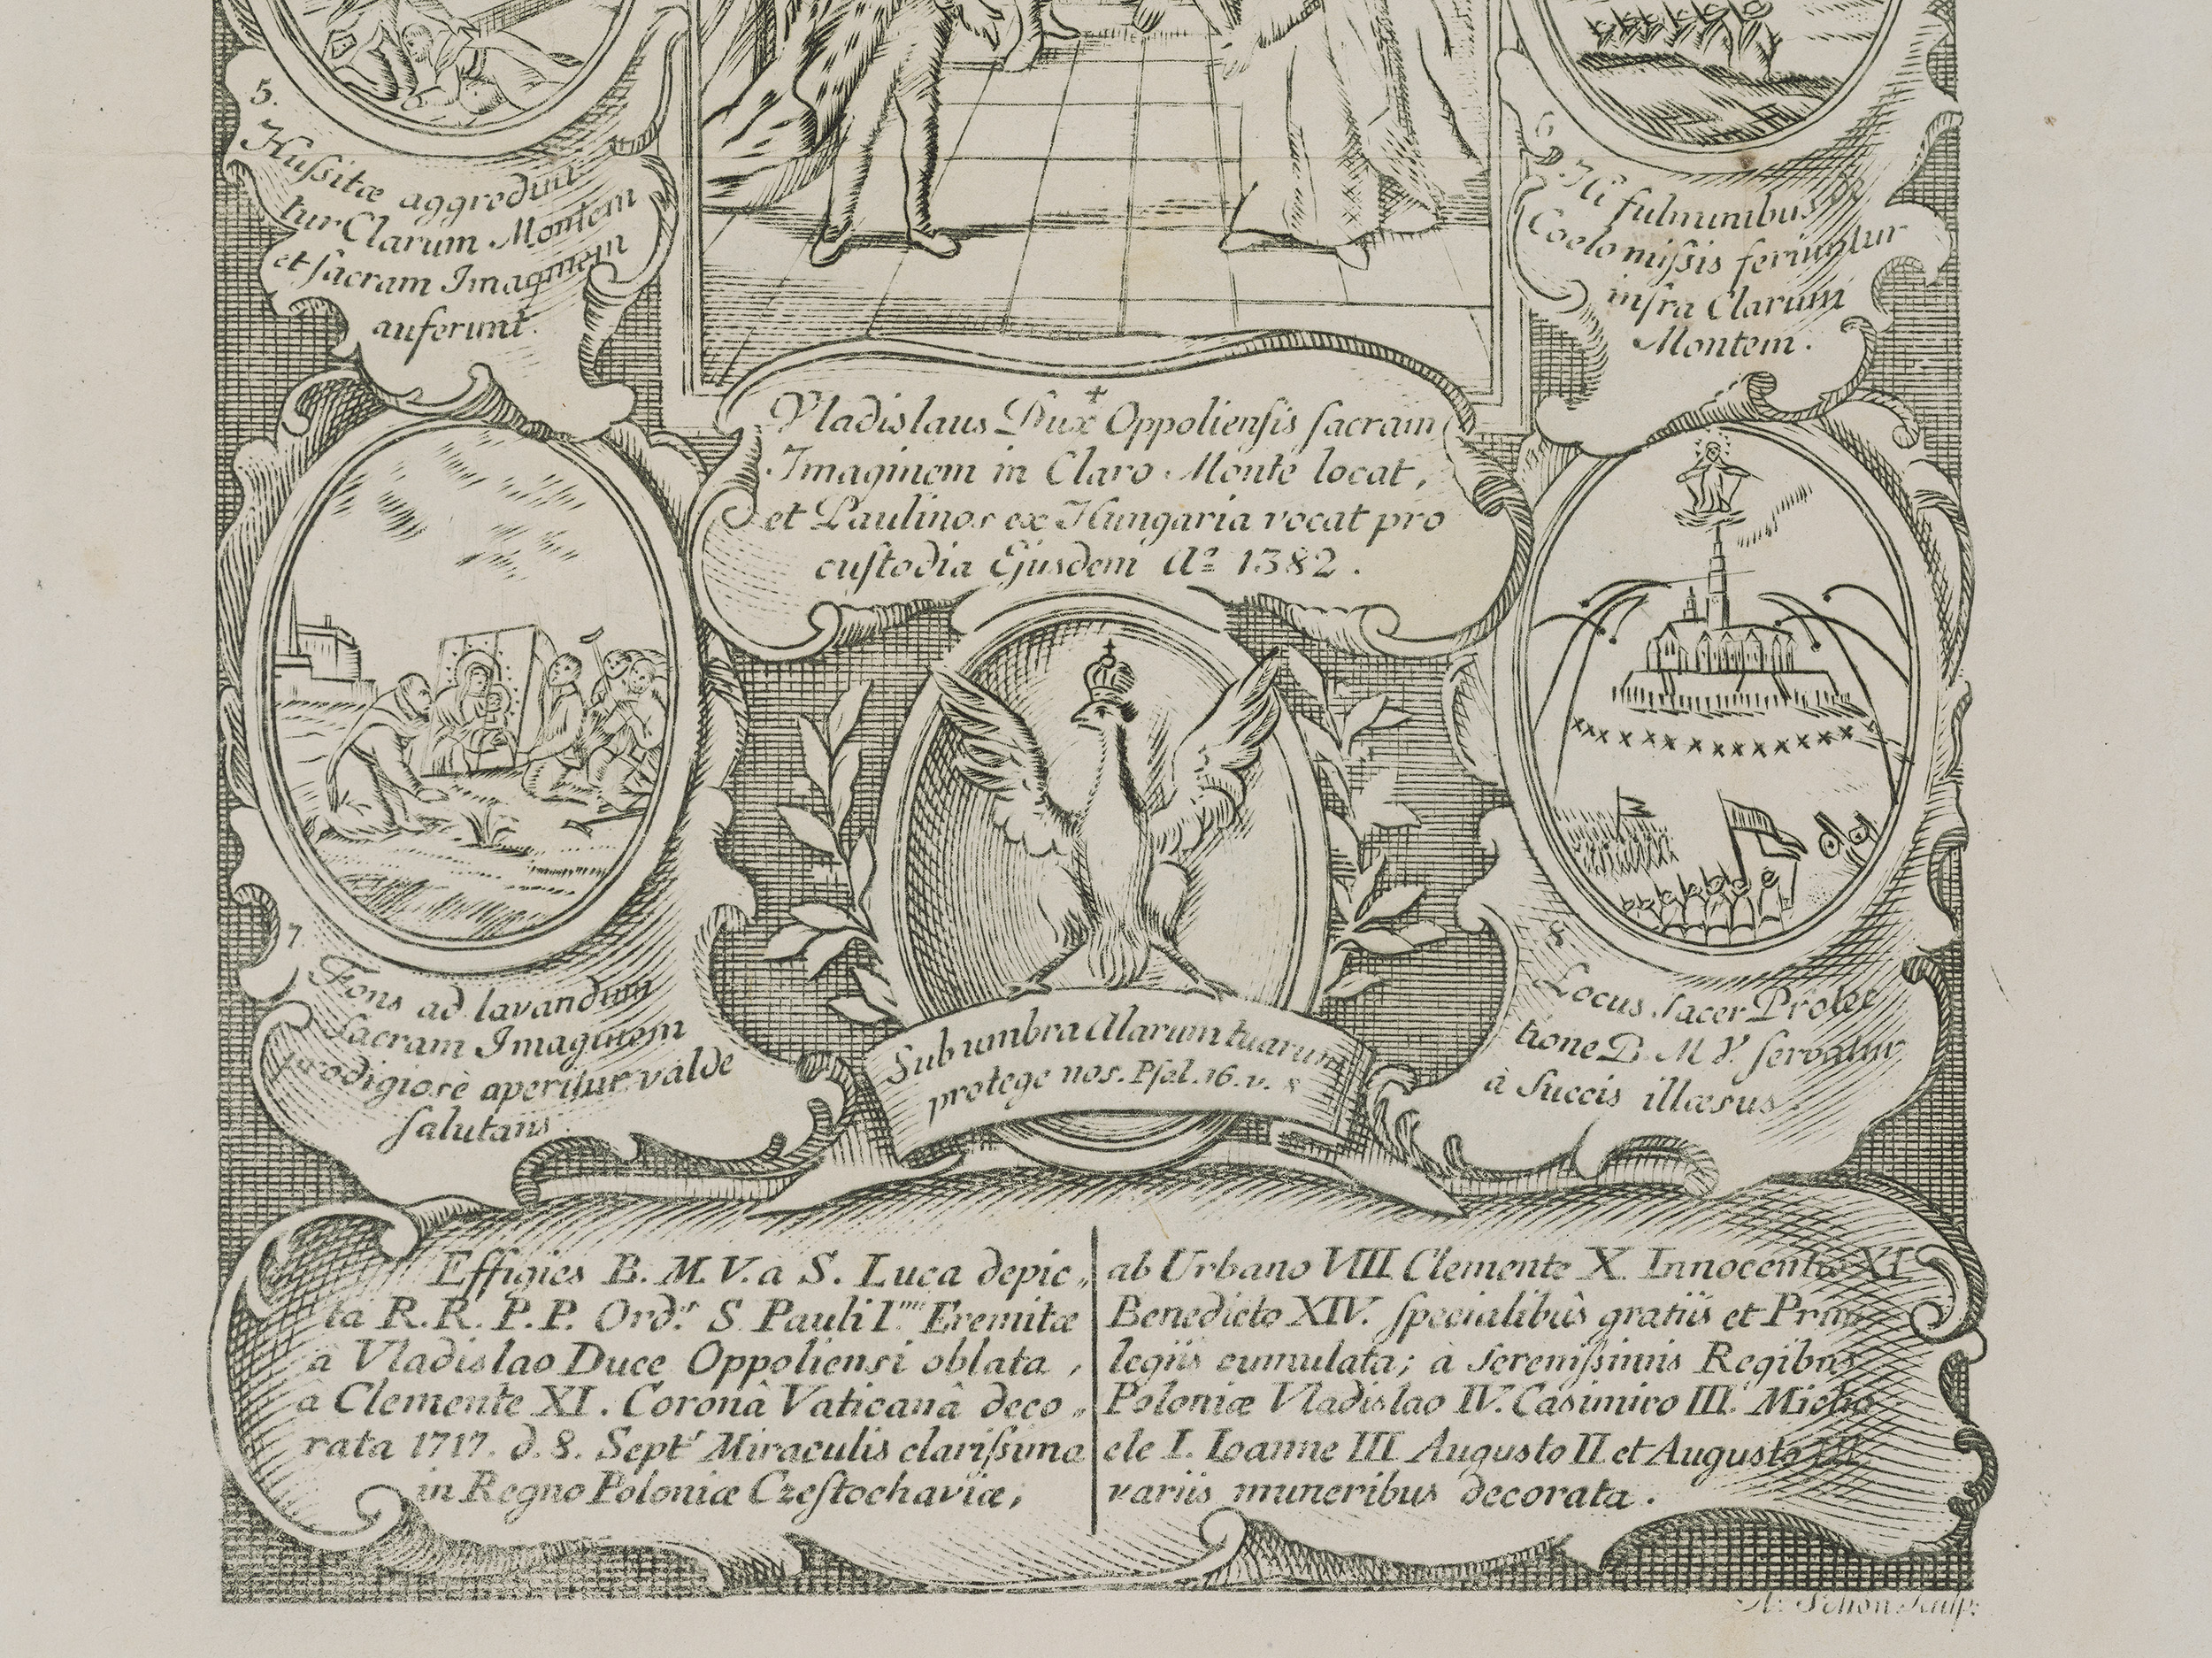 5.
Huſsitæ aggrediun
tur Clarum Montem
et ſacram Imaginem
auferunt.
6.
Hi fulminibus
Coelo miſsis feriuntur
infra Clarum
Montem.
Vladislaus Dux Oppolienſis ſacram
Imaginem in Claro Monte locat,
et Paulinos ex Hungaria vocat pro
cuſtodia Ejusdem Aº 1382.
7
Fons ad lavandum
Sacram Imaginem
prodigiosè aperitur valde
ſalutans.
8.
Locus Sacer Protec
tione B. M V. ſervatur
à Suecis illæsus.
Sub umbra Alarum tuarum
protege nos. Pſal. 16. v. 8
Effigies B. M. V. a S. Luca depic„
ta R.R. P.P. Ord.ˢ S. Pauli I.ᵐⁱ Eremitæ
a Vladislao Duce Oppoliensi oblata,
â Clemente XI. Coronâ Vaticanâ deco„
rata 1717. d. 8. Septʳ Miraculis clariſsima
in Regno Poloniæ Czeſtochaviæ,
ab Urbano VIII Clemente X. Innocentio XI
Benedicto XIV. ſpecialibûs gratiis et Privi
legiis cumulata; à Sereniſsimis Regibus
Poloniæ Vladislao IV. Casimiro III. Micha
ele I. Ioanne III Augusto II et Augusto III
variis muneribus decorata.
A: Schön Sculp: